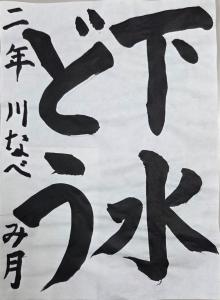 下水
どう
二年 川なべ み月